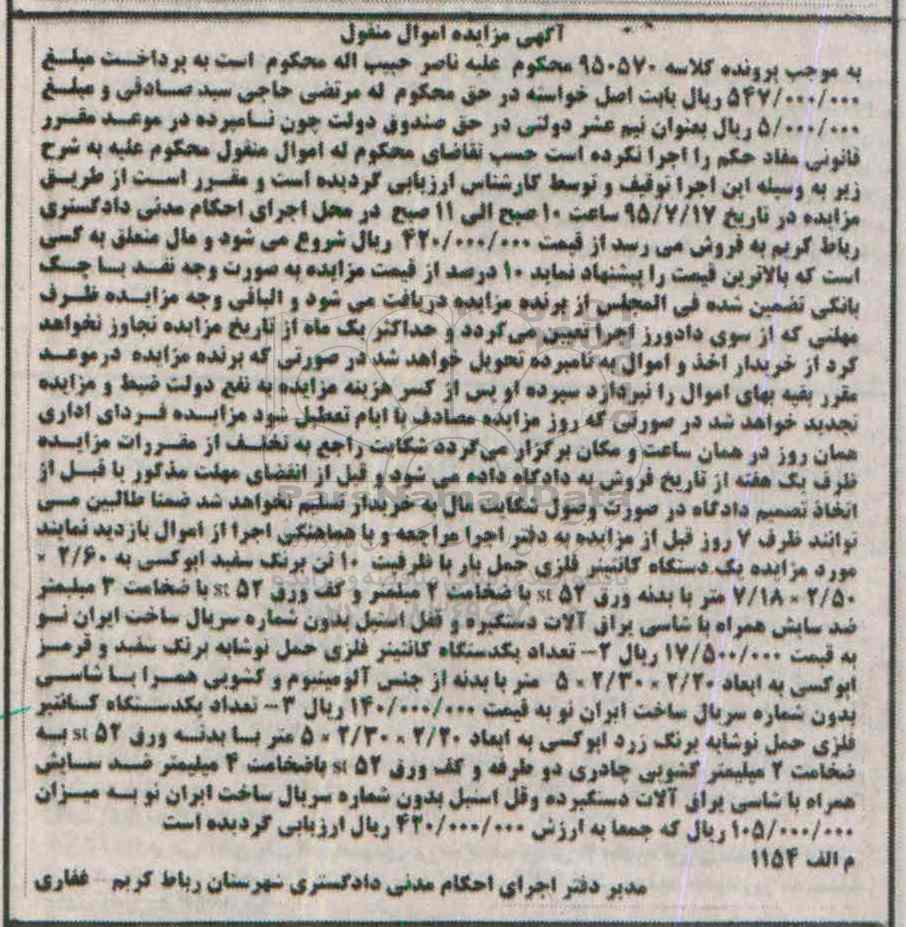 آگهی مزایده اموال منقول
به موجب پرونده کلاسه ۹۵۰۵۷۰ محکوم علیه ناصر حبیب اله محکوم است به پرداخت مبلغ
۵۴۷/۰۰۰/۰۰۰ ریال بابت اصل خواسته در حق محکوم له مرتضی حاجی سید صادقی و مبلغ
۵/۰۰۰/۰۰۰ ریال بعنوان نیم عشر دولتی در حق صندوق دولت چون نامبرده در موعد مقرر
قانونی مفاد حکم را اجرا نکرده است حسب تقاضای محکوم له اموال منقول محکوم علیه به شرح
زیر به وسیله این اجرا توقیف و توسط کارشناس ارزیابی گردیده است و مقرر است از طریق
مزایده در تاریخ ۹۵/۷/۱۷ ساعت ۱۰ صبح الی ۱۱ صبح در محل اجرای احکام مدنی دادگستری
رباط کریم به فروش می رسد از قیمت ۴۲۰/۰۰۰/۰۰۰ ریال شروع می شود و مال متعلق به کسی
است که بالاترین قیمت را پیشنهاد نماید ۱۰ درصد از قیمت مزایده به صورت وجه نقد یا چک
بانکی تضمین شده فی المجلس از برنده مزایده دریافت می شود و الباقی وجه مزایده ظرف
مهلتی که از سوی دادورز اجرا تعیین می گردد و حداکثر یک ماه از تاریخ مزایده تجاوز نخواهد
کرد از خریدار اخذ و اموال به نامبرده تحویل خواهد شد در صورتی که برنده مزایده درموعد
مقرر بقیه بهای اموال را نپردازد سپرده او پس از کسر هزینه مزایده به نفع دولت ضبط و مزایده
تجدید خواهد شد در صورتی که روز مزایده مصادف با ایام تعطیل شود مزایده فردای اداری
همان روز در همان ساعت و مکان برگزار می‌گردد شکایت راجع به تخلف از مقررات مزایده
ظرف یک هفته از تاریخ فروش به دادگاه داده می شود و قبل از انقضای مهلت مذکور یا قبل از
اتخاذ تصمیم دادگاه در صورت وصول شکایت مال به خریدار تسلیم نخواهد شد ضمنا طالبین می
توانند ظرف ۷ روز قبل از مزایده به دفتر اجرا مراجعه و با هماهنگی اجرا از اموال بازدید نمایند
مورد مزایده یک دستگاه کانتینر فلزی حمل بار با ظرفیت ۱۰ تن برنگ سفید اپوکسی به ۲/۶۰ ×
۲/۵۰ × ۷/۱۸ متر با بدنه ورق st ۵۲ با ضخامت ۲ میلمتر و کف ورق st ۵۲ با ضخامت ۳ میلیمتر
ضد سایش همراه با شاسی یراق آلات دستگیره و قفل استیل بدون شماره سریال ساخت ایران نو
به قیمت ۱۷/۵۰۰/۰۰۰ ریال ۲– تعداد یکدستگاه کانتینر فلزی حمل نوشابه برنگ سفید و قرمز
اپوکسی به ابعاد ۲/۲۰ × ۲/۳۰ × ۵ متر با بدنه از جنس آلومینیوم و کشویی همرا با شاسی
بدون شماره سریال ساخت ایران نو به قیمت ۱۴۰/۰۰۰/۰۰۰ ریال ۳– تعداد یکدستگاه کانتیر
فلزی حمل نوشابه برنگ زرد اپوکسی به ابعاد ۲/۲۰ × ۲/۳۰ × ۵ متر با بدنه ورق st ۵۲ به
ضخامت ۲ میلیمتر کشویی چادری دو طرفه و کف ورق st ۵۲ باضخامت ۴ میلیمتر ضد سایش
همراه با شاسی یراق آلات دستگیرده وقل استیل بدون شماره سریال ساخت ایران نو به میزان
۱۰۵/۰۰۰/۰۰۰ ریال که جمعا به ارزش ۴۲۰/۰۰۰/۰۰۰ ریال ارزیابی گردیده است
م الف ۱۱۵۴
مدیر دفتر اجرای احکام مدنی دادگستری شهرستان رباط کریم - غفاری
ParsNamadData